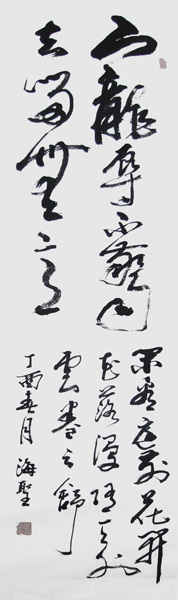 寵辱不驚
去留無意
閑看庭前花開
花落漫隨天外
雲卷云舒
丁酉春月 海聖